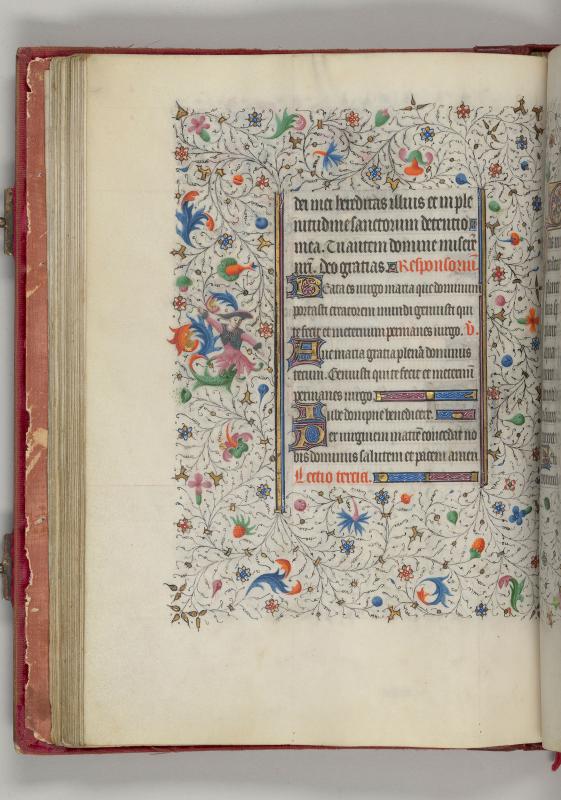 dei mei hereditas illius et in ple
nitudine sanctorum detentio
mea. Tu autem domine miserere
nr̄i. Deo gratias Responsoriū.
Beata es uirgo maria que dominum
portasti creatorem mundi genuisti qui
te fecit et in eternum permanes uirgo. V.
Aue maria gratia plena dominus
tecum. Genuisti qui te fecit et in eternū
permanes uirgo
Iube dompne benedicere.
Per uirginem matrē concedat no
bis dominus salutem et pacem amen
Lectio tercia.